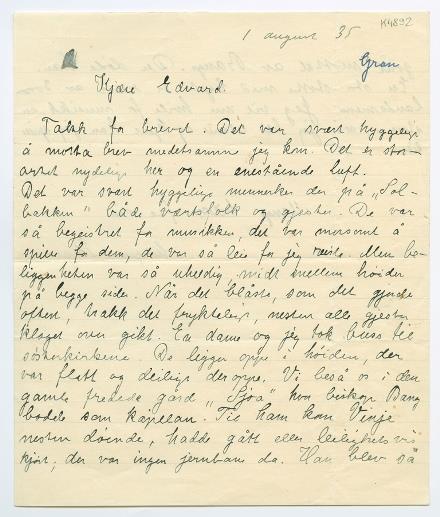 K4892
1 august 35
Gran
Kjære Edvard.
Takk for brevet. Det var svært hyggelig
å motta brev medetsamme jeg kom. Det er stor-
artet nydelig her og en enestående luft.
Det var svært hyggelige mennesker der på „Sol-
bakken" både vertsfolk og gjester. De var
så begeistret for musikken, det var morsomt å
spille for dem, de var så leie for jeg reiste. Men be-
liggenheten var så uheldig, midt mellem høider
på begge sider. Når det blåste, som det gjorde
oftest, trakk det fryktelig, nesten alle gjester
klaget over gikt. En dame og jeg tok buss til
søsterkirkene. De ligger oppe i høiden, der
var flatt og deilig der oppe. Vi beså os i den
gamle fredede gård „Sjoa" hvor biskop Bang
bodde som kapelan. Til ham kom Vinje
nesten døende, hadde gått eller leilighetsvis
kjørt, der var ingen jernbane da. Han blev så